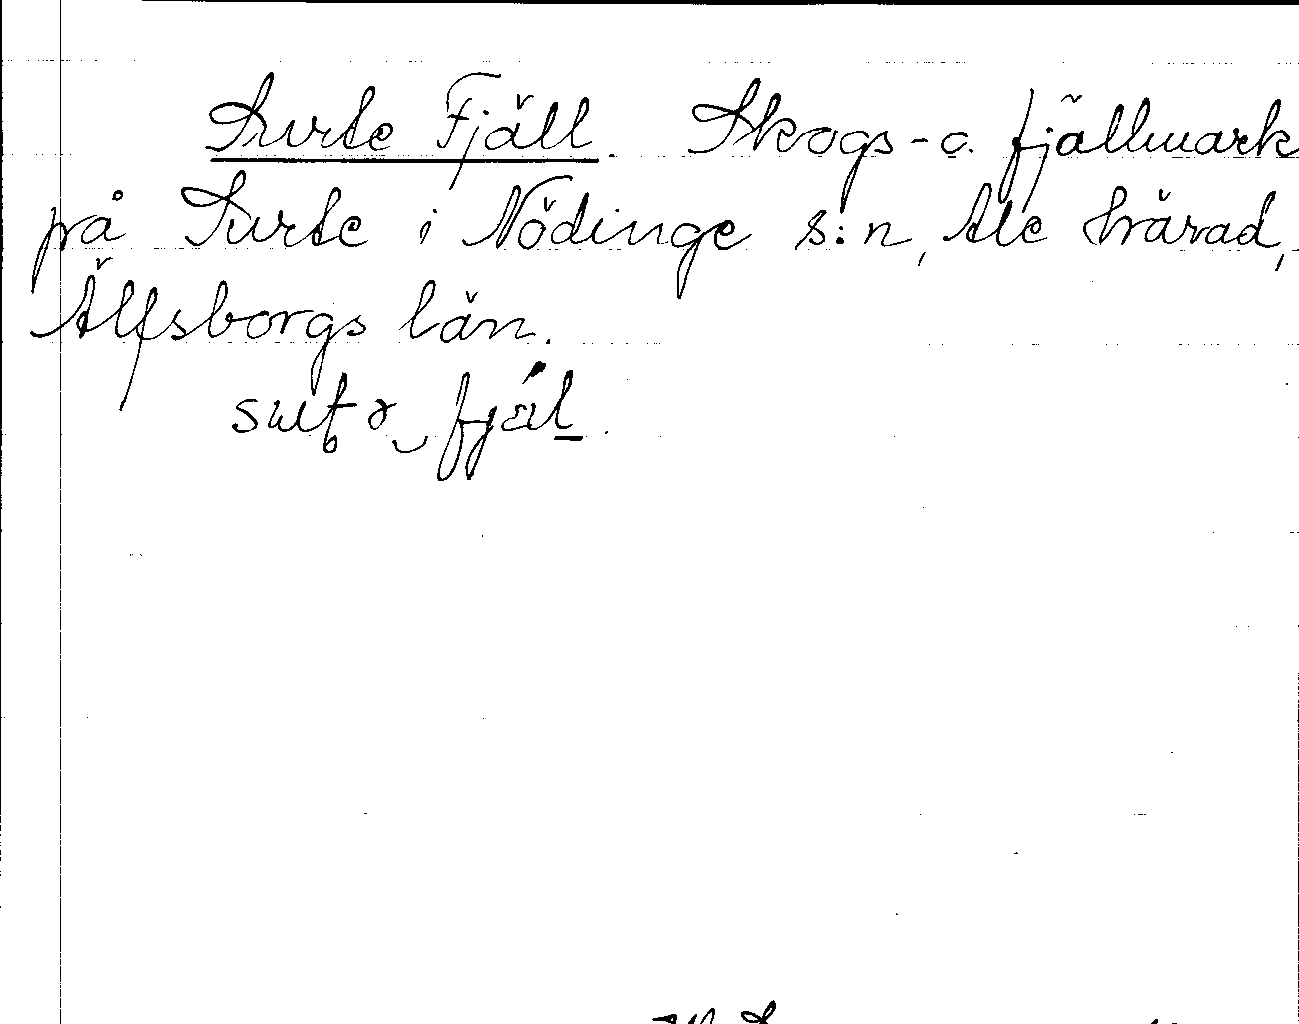 Surte Fjäll. Skogs- o. fjällmark
på Surte i Nödinge s:n, Ale härad,
Älfsborgs län.